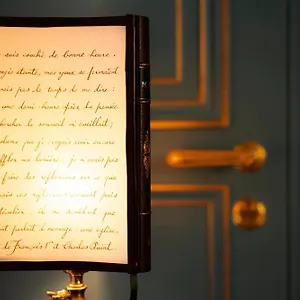 suis couché de bonne heure.
ougie éteinte, mes yeux se fermaient
vais pas le temps de me dire :
une demi-heure après la pensée
chercher le sommeil m'éveillait ;
que je croyais avoir encore
ma lumière ; je n'avais pas
faire des réflexions sur ce que
ces réflexions avaient pris
il me semblait que
parlait l'ouvrage : une église,
de François Ier et Charles Quint